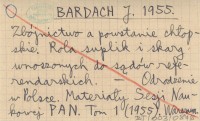 BARDACH J. 1955.
Zbójnictwo a powstanie chłop-
skie. Rola suplik i skarg
wnoszonych do sądów refe-
rendarskich. — Odrodzenie
w Polsce. Materiały Sesji Nau-
kowej PAN. Tom 1 (1955) Warszawa